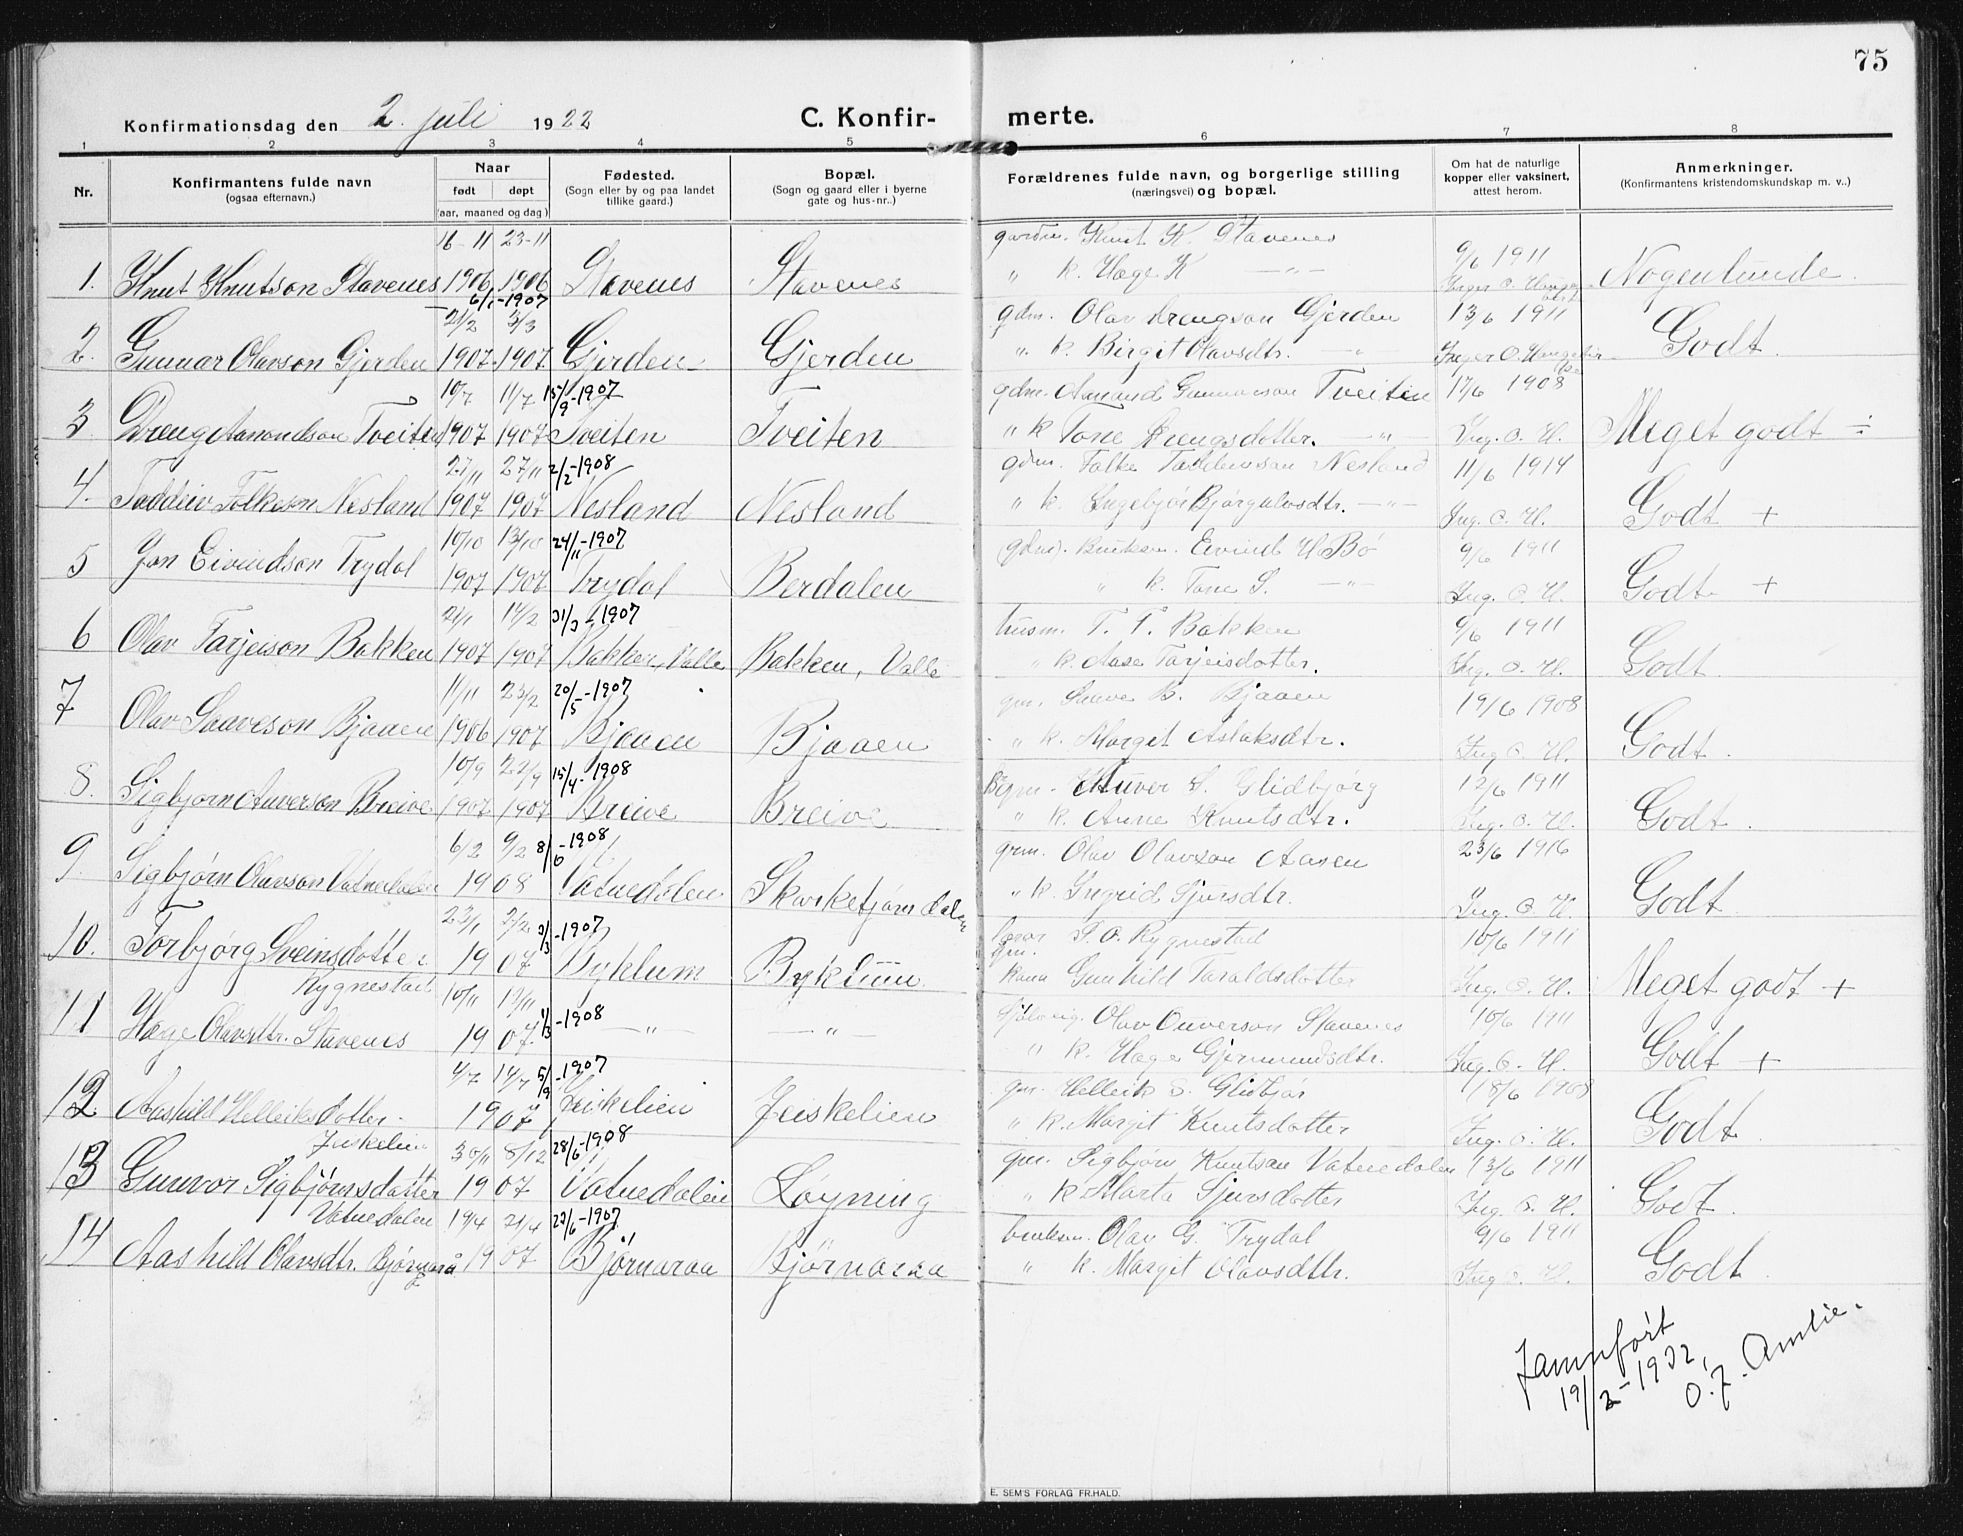 75
Konfirmationsdag den 2. juli 1922 C. Konfir- merte.
1 2 3 4 5 6 7 8
Nr. Konfirmantens fulde navn (ogsaa efternavn.) Naar født døpt (aar, maaned og dag) Fødested. (Sogn eller by og paa landet tillike gaard.) Bopæl. (Sogn og gaard eller i byerne gate og hus-nr.) Forældrenes fulde navn, og borgerlige stilling (næringsvei) og bopæl. Om hat de naturlige kopper eller vaksinert, attest herom. Anmerkninger. (Konfirmantens kristendomskundskap m. v..)
16-11 23-11 gardm. Knut K. Stavenes 9/6 1911
1. Knut Knutson Stavenes 1906 1906 Stavenes Stavenes " k. Hæge K —"— Nogenlunde.
6/1-1907
21/2 3/3 gdm. Olav Drengson Gjerden 13/6 1911
2. Gunnar Olavson Gjerden 1907 1907 Gjerden Gjerden " k. Birgit Olavsdtr. —"— Godt.
10/7 11/7 15/9-1907 gdm. Aamund Gunnarson Tveiten 17/6 1908
3 Dreng Aamondson Tveiten 1907 1907 Tveiten Tveiten " k Tone Drengsdotter. —"— Ing. O. H. Meget godt ÷
27/11 27/11 2/2-1908 gdm. Folke Taddeivson Nesland 11/6 1914
4. Taddeiv Folkeson Nesland 1907 1907 Nesland Nesland " k. Ingebjør Bjørgulvsdtr. —"— Ing. O. H. Godt +
10/10 13/10 24/11-1907 Eivind H Bø 9/6 1911
5 Jon Eivindson Trydal 1907 1907 Trydal Berdalen " k. Tone S. —"— Ing. O. H. Godt +
21/1 17/2 31/3-1907 husm. T. T. Bakken 9/6 1911
6 Olav Tarjeison Bakken 1907 1907 Bakken, Valle Bakken, Valle " k. Aase Tarjeisdotter. Ing. O. H. Godt
11/11 23/2 20/5-1907 gm. Saave B. Bjaaen 19/6 1908
7 Olav Saaveson Bjaaen 1906 1907 Bjaaen Bjaaen " k. Marget Aslaksdtr. Ing. O. H. Godt.
10/9 22/9 15/4-1908 Anver S. Glidbjørg 12/6 1911
8. Sigbjørn Anverson Breive 1907 1907 Breive Breive " k. Anne Knutsdtr. Ing. O. H. Godt.
6/2 9/2 8/6-1908 grm. Olav Olavson Aasen 23/6 1916
9. Sigbjørn Olavson Vatnedalen 1908 Vatnedalen " k. Ingrid Sjursdtr. Ing. O. H. Godt.
23/1 2/2 3/3-1907 gm. S. O. Rygnestad 10/6 1911
10. Torbjørg Sveinsdotter 1907 Byklum Byklum kona Gunhild Taraldsdotter Ing. O. H. Meget godt +
Rygnestad
10/11 19/11 1/3-1908 Olav Onverson Stavenes 10/6 1911
11 Hæge Olavsdtr. Stavenes 1907 —"— —"— " k. Hæge Gjermundsdtr. Ing. O. H. Godt +
4/7 14/7 5/9-1907 gm. Helleik S. Glidbjør 18/6 1908
12 Aashild Helleiksdotter. 1907 Jeiskelien Jeiskelien " k. Margit Knutsdotter Ing. O. H. Godt
Jeiskelien
30/11 8/12 28/6-1908 gm. Sigbjørn Knutson Vatnedalen 13/6 1911
13 Gunvor Sigbjørnsdotter 1907 Vatnedalen Løyning " k. Marta Sjursdotter Ing. O. H. Godt.
Vatnedalen
19/4 21/4 23/6-1907 bruksm. Olav G. Trydal 9/6 1911
14 Aashild Olavsdtr. Bjørnarå 1907 Bjørnaraa Bjørnaraa " k. Margit Olavsdtr. Ing. O. H. Godt.
Jamnført
19/2-1932,
O. J. Amlie.
E. SEM'S FORLAG FR.HALD.